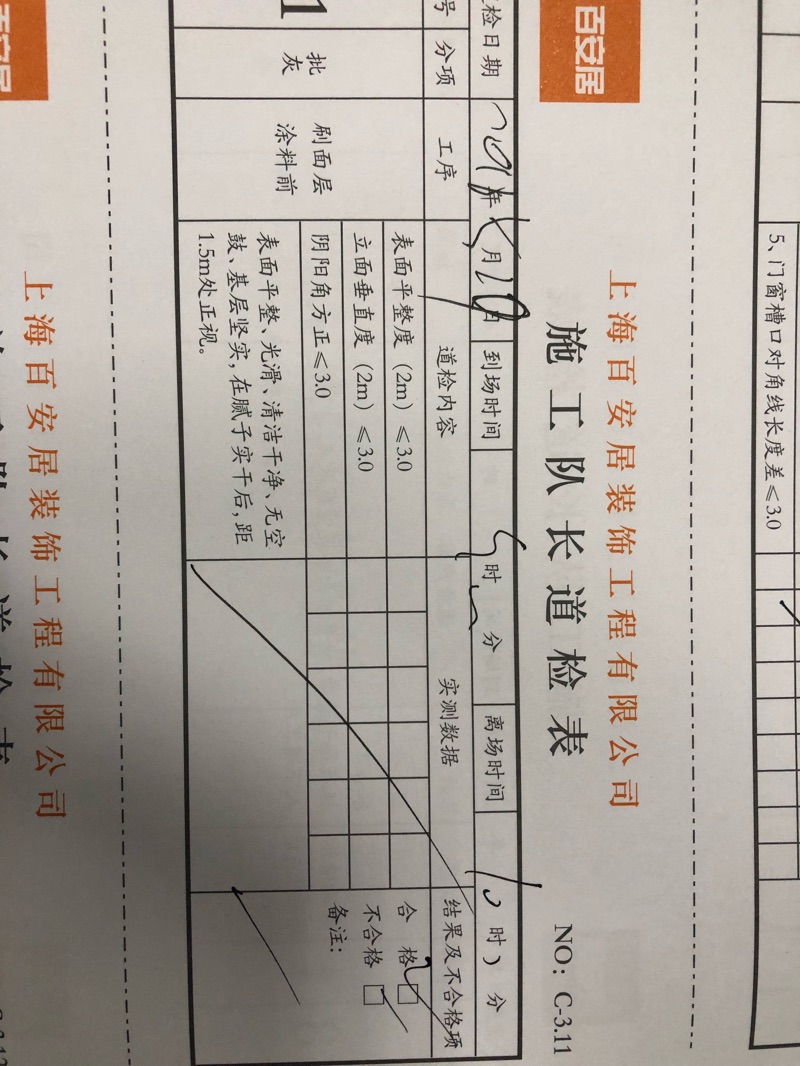 5、门窗槽口对角线长度差≤3.0
百安居
上海百安居装饰工程有限公司
施工队长道检表
NO：C-3.11
检日期 年 月 日 到场时间 时 分 离场时间 时 分
号 分项 工序 道检内容 实测数据 结果及不合格项
1 批灰 刷面层涂料前
表面平整度（2m）≤3.0
立面垂直度（2m）≤3.0
阴阳角方正≤3.0
表面平整、光滑、清洁干净、无空
鼓、基层坚实，在腻子实干后，距
1.5m处正视。
合 格 □
不合格 □
备注：
百安居
上海百安居装饰工程有限公司